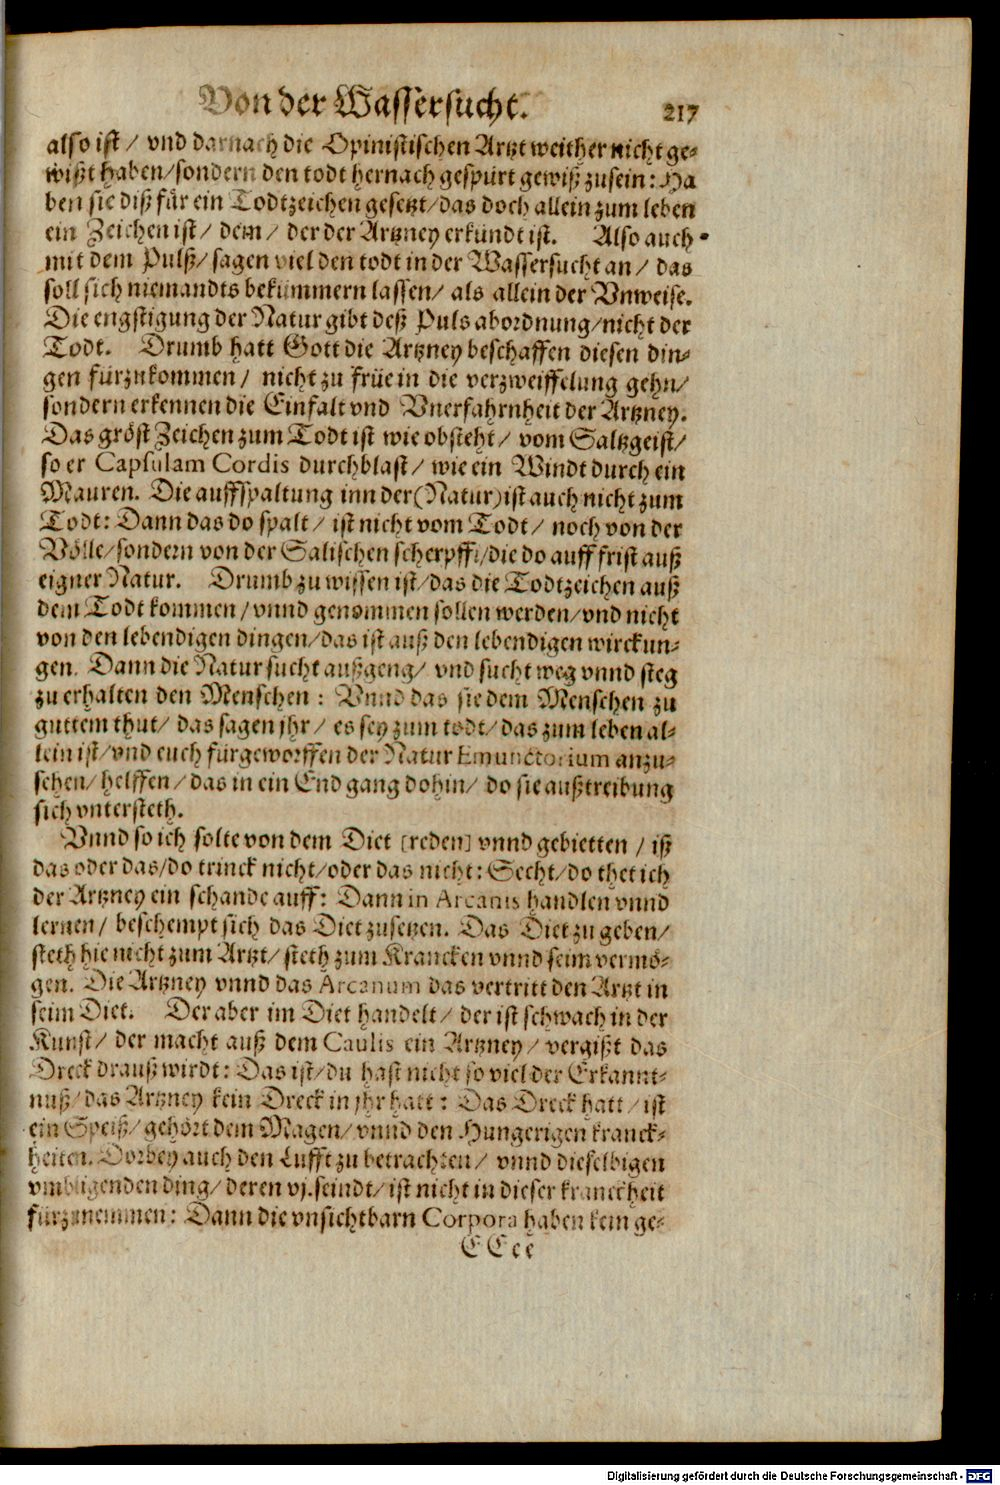 Von der Wassersucht. 217
also ist / vnd darnach die Opinistischen Artzt weither nicht ge-
wißt haben/sondern den todt hernach gespürt gewiß zusein: Ha
ben sie diß für ein Todtzeichen gesetzt/das doch allein zum leben
ein Zeichen ist/ dem/ der der Artzney erkündt ist. Also auch
mit dem Pulß/ sagen viel den todt in der Wassersucht an/ das
soll sich niemandts bekümmern lassen/ als allein der Vnweise.
Die engstigung der Natur gibt deß Puls abordnung/nicht der
Todt. Drumb hatt Gott die Artzney beschaffen diesen din-
gen fürzukommen/ nicht zu früe in die verzweiffelung gehn/
sondern erkennen die Einfalt vnd Vnerfahrnheit der Artzney.
Das gröst Zeichen zum Todt ist wie obsteht/ vom Saltzgeist/
so er Capsulam Cordis durchblast/ wie ein Windt durch ein
Mauren. Die auffspaltung inn der (Natur) ist auch nicht zum
Todt: Dann das do spalt/ ist nicht vom Todt/ noch von der
Völle/sondern von der Salischen scherpffe/die do auff frist auß
eigner Natur. Drumb zu wissen ist/das die Todtzeichen auß
dem Todt kommen/vnnd genommen sollen werden/vnd nicht
von den lebendigen dingen/das ist auß den lebendigen wirckun-
gen. Dann die Natur sucht außgeng/ vnd sucht weg vnnd steg
zu erhalten den Menschen: Vnnd das sie dem Menschen zu
guttem thut/ das sagen jhr/ es sey zum todt/das zum leben al-
lein ist/vnd euch fürgeworffen der Natur Emunctorium anzu-
sehen/helffen/das in ein End gang dohin/ do sie außtreibung
sich vntersteth.
Vnnd so ich solte von dem Diet [reden] vnnd gebietten / iß
das oder das/do trinck nicht/oder das nicht: Secht/do thet ich
der Artzney ein schande auff: Dann in Arcanis handlen vnnd
lernen/ beschempt sich das Diet zusetzen. Das Diet zu geben/
steth hie nicht zum Artzt/ steth zum Krancken vnnd seim vermö-
gen. Die Artzney vnnd das Arcanum das vertritt den Artzt in
seim Diet. Der aber im Diet handelt/ der ist schwach in der
Kunst/ der macht auß dem Caulis ein Artzney/ vergißt das
Dreck drauß wirdt: Das ist/du hast nicht so viel der Erkannt-
nuß/das Artzney kein Dreck in jhr hatt: Das Dreck hatt/ ist
ein Speiß/gehört dem Magen/vnnd den Hungerigen kranck-
heiten. Dorbey auch den Lufft zu betrachten/ vnnd dieselbigen
vmbligenden ding/deren vj. seindt/ist nicht in dieser kranckheit
fürzunemmen: Dann die vnsichtbarn Corpora haben kein ge-
EEee
Digitalisierung gefördert durch die Deutsche Forschungsgemeinschaft - DFG